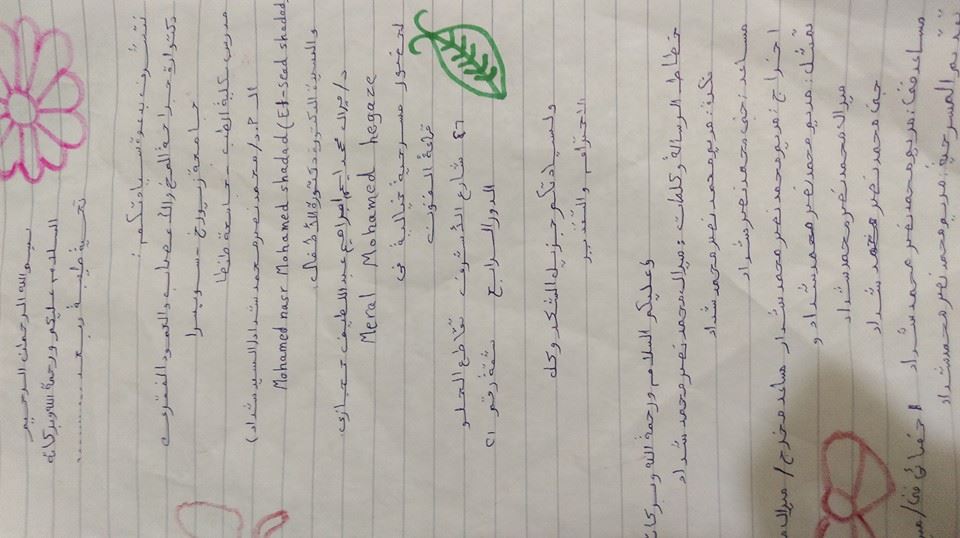 بسم الله الرحمن الرحيم
السلام عليكم ورحمة الله وبركاته
تحية طيبة وبعد ............
نتشرف بدعوة سيادتكم
دكتور / جراحة المخ والأعصاب والعمود الفقري
جامعة زيورخ - سويسرا
مدرس كلية الطب - جامعة طنطا
ا.د / محمد نصر محمد شداد (السيد شداد)
Mohamed nasr Mohamed shadad (El-sead shadad)
والسيدة الدكتورة دكتورة الأطفال
د / ميرال محمد ابراهيم عبد اللطيف حجازي
Meral Mohamed hegaze
لحضور مسرحية خيالية في
قاعة الفنون
٤٦ شارع الأشرف تقاطع الحلو
الدور الرابع شقة رقم
ولسيادتكم جزيل الشكر وكل
الاحترام والتقدير
وعليكم السلام ورحمة الله وبركاته
خطاط الرسالة وكلمات : ميرال محمد نصر محمد شداد
فكرة : مريم محمد نصر محمد شداد
مساعد : حمد محمد نصر شداد
اخراج : مريم محمد نصر محمد شداد مساعد مخرج / ميرال
تمثيل : مريم محمد نصر محمد شداد و
ميرال محمد نصر محمد شداد
حمد محمد نصر محمد شداد
مساعدة : مريم محمد نصر محمد شداد
تقديم المسرحية : مريم محمد نصر محمد شداد